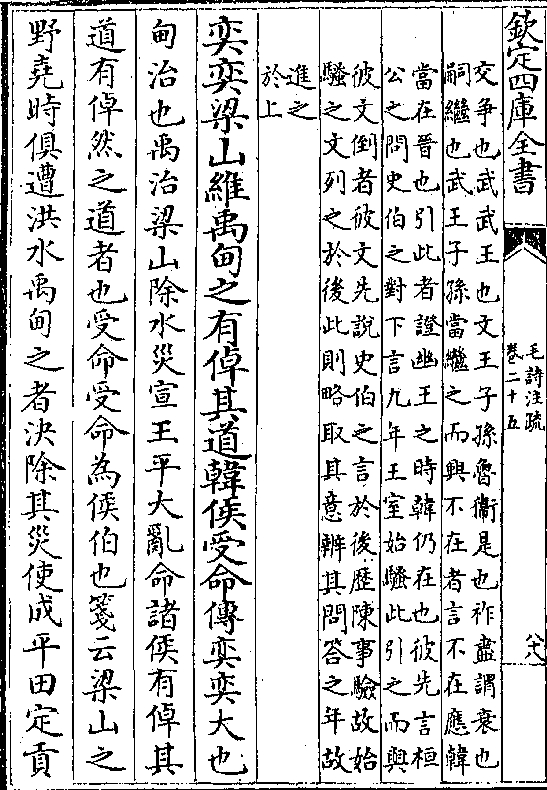 欽定四庫全書
毛詩注疏
卷二十五
六八
交争也武武王也文王子孫魯衞是也祚盡謂衰也
嗣繼也武王子孫當繼之而興不在者言不在應韓
當在晉也引此者證幽王之時韓仍在也彼先言桓
公之問史伯之對下言九年王室始騷此引之而與
彼文倒者彼文先說史伯之言於後歴陳事驗故始
騷之文列之於後此則略取其意辨其問答之年故
進之
於上
奕奕梁山維禹甸之有倬其道韓侯受命傳奕奕大也
甸治也禹治梁山除水災宣王平大亂命諸侯有倬其
道有倬然之道者也受命受命為侯伯也箋云梁山之
野堯時俱遭洪水禹甸之者決除其災使成平田定貢